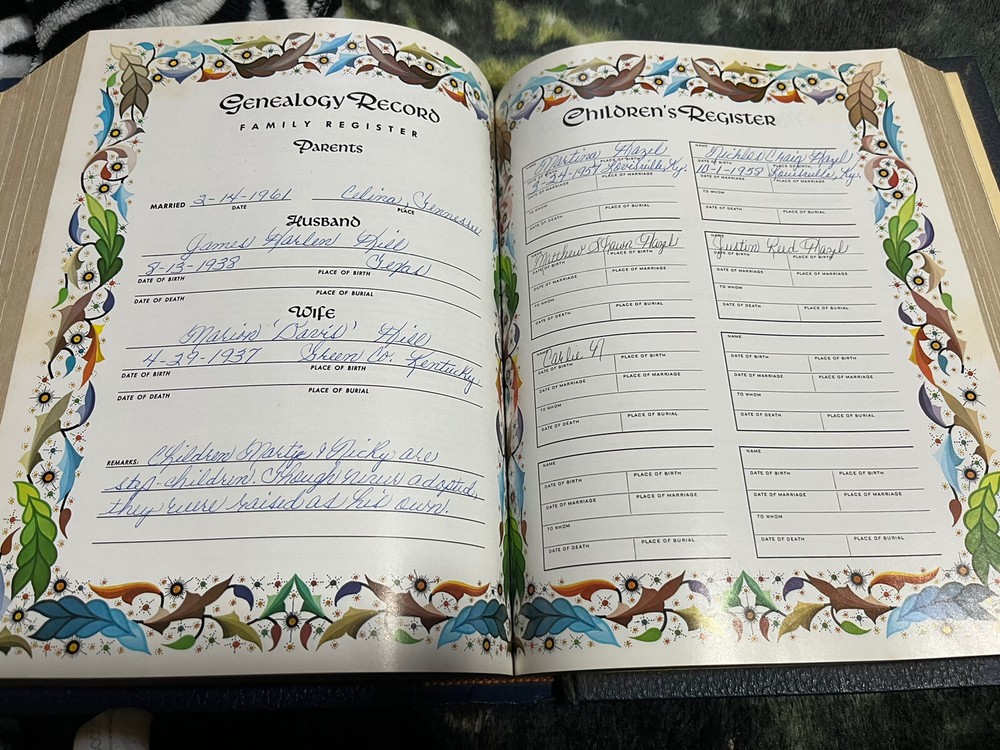 Genealogy Record
FAMILY REGISTER
Parents
MARRIED 3-14-1961 Celina, Tennessee
DATE PLACE
Husband
James Harlen Hill
8-13-1938 Texas
DATE OF BIRTH PLACE OF BIRTH
DATE OF DEATH PLACE OF BURIAL
Wife
Marion "Davis" Hill
4-29-1937 Green Co. Kentucky
DATE OF BIRTH PLACE OF BIRTH
DATE OF DEATH PLACE OF BURIAL
REMARKS: Children Marty & Nicky are
step-children. Though never adopted,
they were raised as his own.
Children's Register
Martina Hazel
24-1957 Louisville, Ky.
DATE OF MARRIAGE PLACE OF MARRIAGE
TO WHOM
DATE OF DEATH PLACE OF BURIAL
NAME Nicholas Craig Hazel
DATE OF BIRTH PLACE OF BIRTH
10-1-1958 Louisville, Ky.
DATE OF MARRIAGE PLACE OF MARRIAGE
TO WHOM
DATE OF DEATH PLACE OF BURIAL
NAME Matthew Shawn Hazel
DATE OF BIRTH PLACE OF BIRTH
DATE OF MARRIAGE PLACE OF MARRIAGE
TO WHOM
DATE OF DEATH PLACE OF BURIAL
NAME Justin Reid Hazel
DATE OF BIRTH PLACE OF BIRTH
DATE OF MARRIAGE PLACE OF MARRIAGE
TO WHOM
DATE OF DEATH PLACE OF BURIAL
NAME Carlie N
DATE OF BIRTH PLACE OF BIRTH
DATE OF MARRIAGE PLACE OF MARRIAGE
TO WHOM
DATE OF DEATH PLACE OF BURIAL
NAME
DATE OF BIRTH PLACE OF BIRTH
DATE OF MARRIAGE PLACE OF MARRIAGE
TO WHOM
DATE OF DEATH PLACE OF BURIAL
NAME
DATE OF BIRTH PLACE OF BIRTH
DATE OF MARRIAGE PLACE OF MARRIAGE
TO WHOM
DATE OF DEATH PLACE OF BURIAL
NAME
DATE OF BIRTH PLACE OF BIRTH
DATE OF MARRIAGE PLACE OF MARRIAGE
TO WHOM
DATE OF DEATH PLACE OF BURIAL